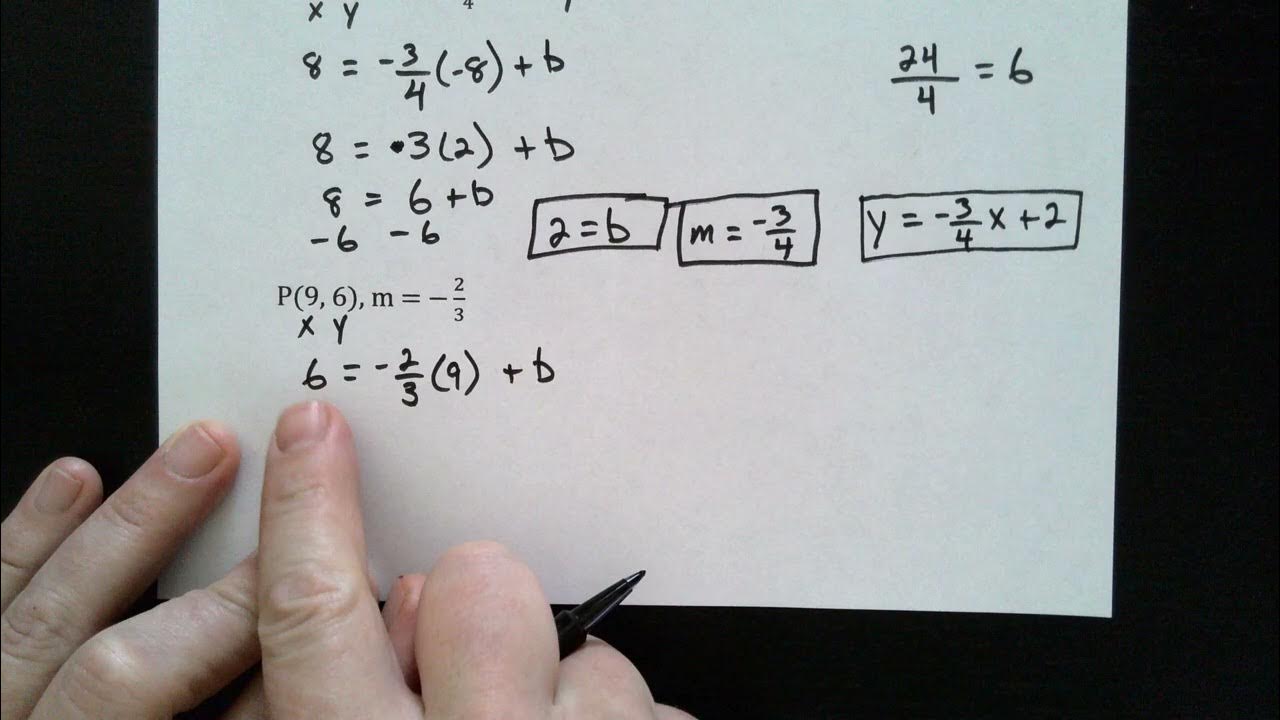 x y 4
8 = -3/4 (-8) + b
24/4 = 6
8 = 3(2) + b
8 = 6 + b
-6 -6
2 = b
m = -3/4
y = -3/4 x + 2
P(9, 6), m = −2/3
x y
6 = -2/3 (9) + b